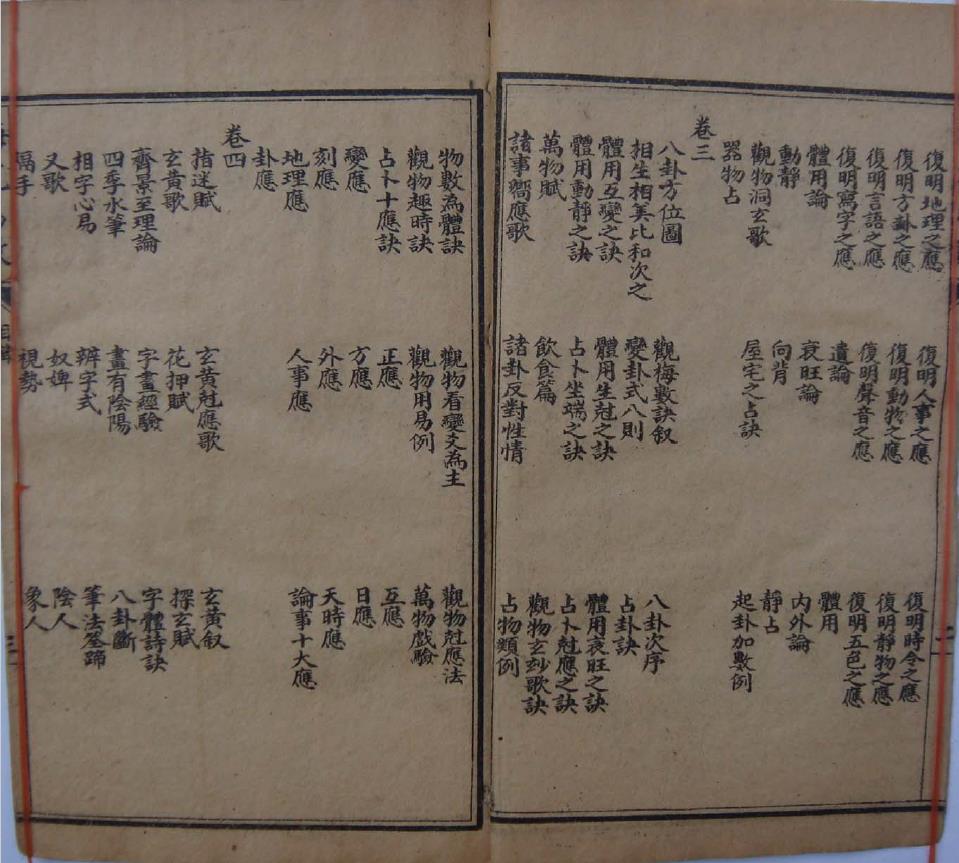 復明地理之應 復明人事之應 復明時令之應
復明方卦之應 復明動物之應 復明靜物之應
復明言語之應 復明聲音之應 復明五色之應
復明寫字之應 遺論 體用
體用論 衰旺論 內外論
動靜 向背 靜占
觀物洞玄歌 屋宅之占訣 起卦加數例
器物占
卷三
八卦方位圖 觀梅數訣叙 八卦次序
相生相尅比和次之 變卦式八則 占卦訣
體用互變之訣 體用生尅之訣 體用衰旺之訣
體用動靜之訣 占卜坐端之訣 占卜尅應之訣
萬物賦 飲食篇 觀物玄妙歌訣
諸事響應歌 諸卦反對性情 占物類例
物數為體訣 觀物看變爻為主 觀物尅應法
觀物趣時訣 觀物用易例 萬物戲驗
占卜十應訣 正應 互應
變應 方應 日應
刻應 外應 天時應
地理應 人事應 論事十大應
卦應
卷四
指迷賦 玄黃尅應歌 玄黃叙
玄黃歌 花押賦 探玄賦
齊景至理論 字畫經驗 字體詩訣
四季水筆 畫有陰陽 八卦斷
相字心易 辨字式 筆法筌蹄
又歌 奴婢 陰人
隔手 視勢 象人